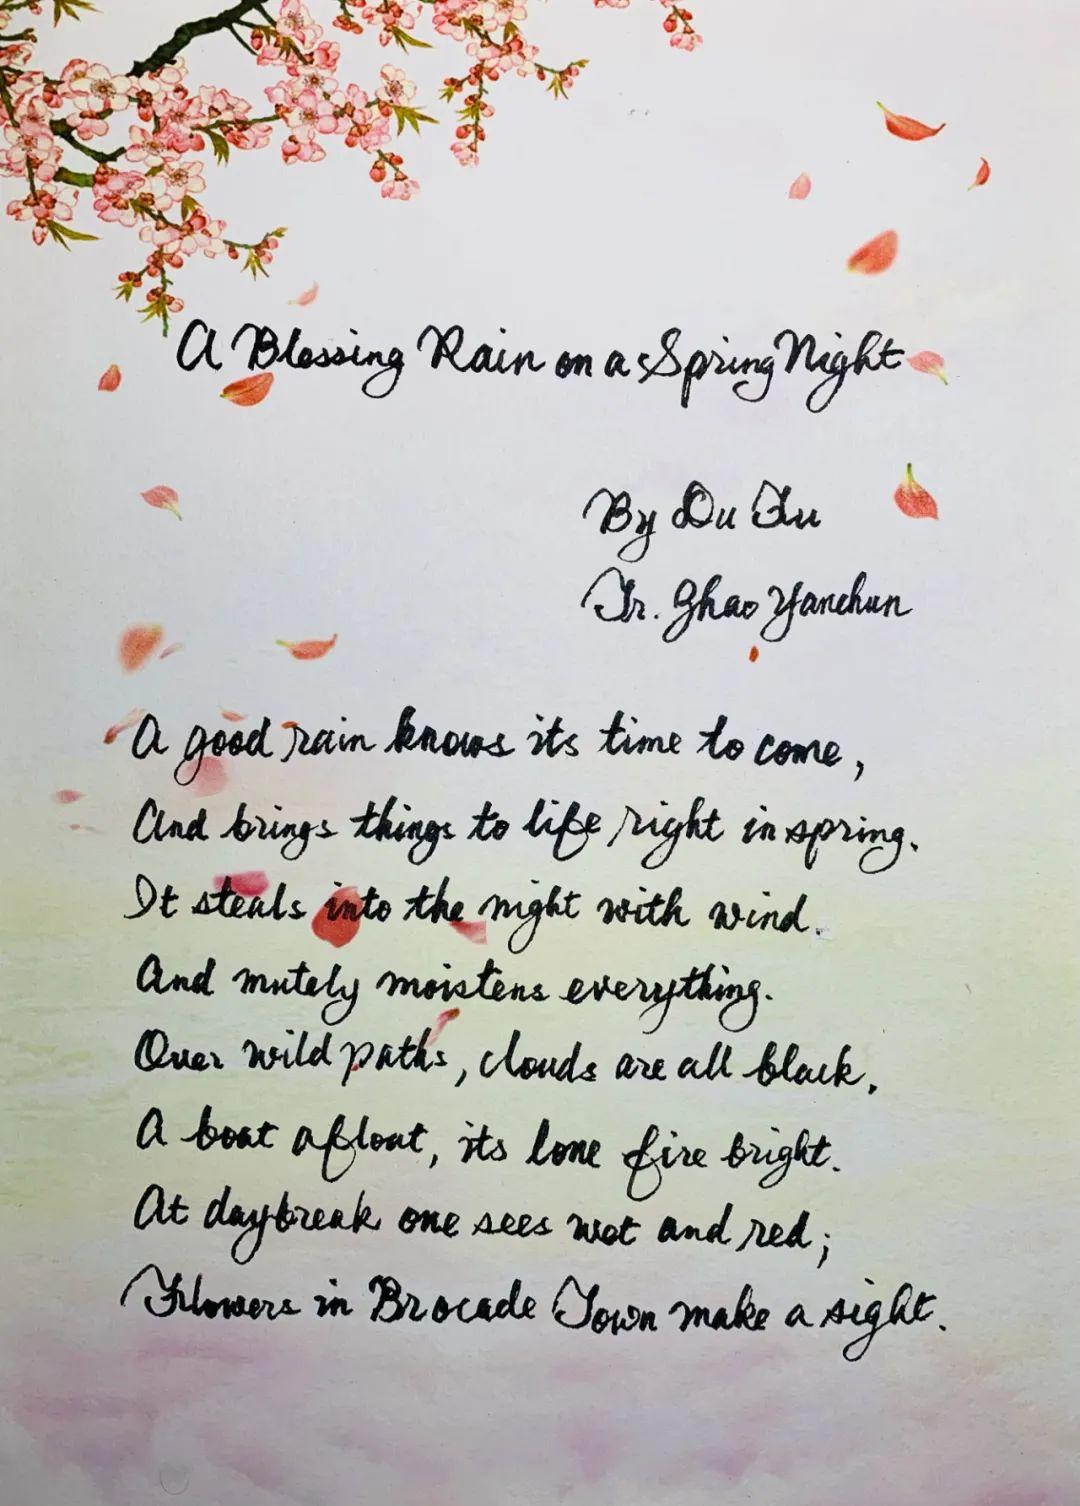 A Blessing Rain on a Spring Night
By Du Fu
Tr. Zhao Yanchun
A good rain knows its time to come,
And brings things to life right in spring.
It steals into the night with wind.
And mutely moistens everything.
Over wild paths, clouds are all black.
A boat afloat, its lone fire bright.
At daybreak one sees wet and red;
Flowers in Brocade Town make a sight.